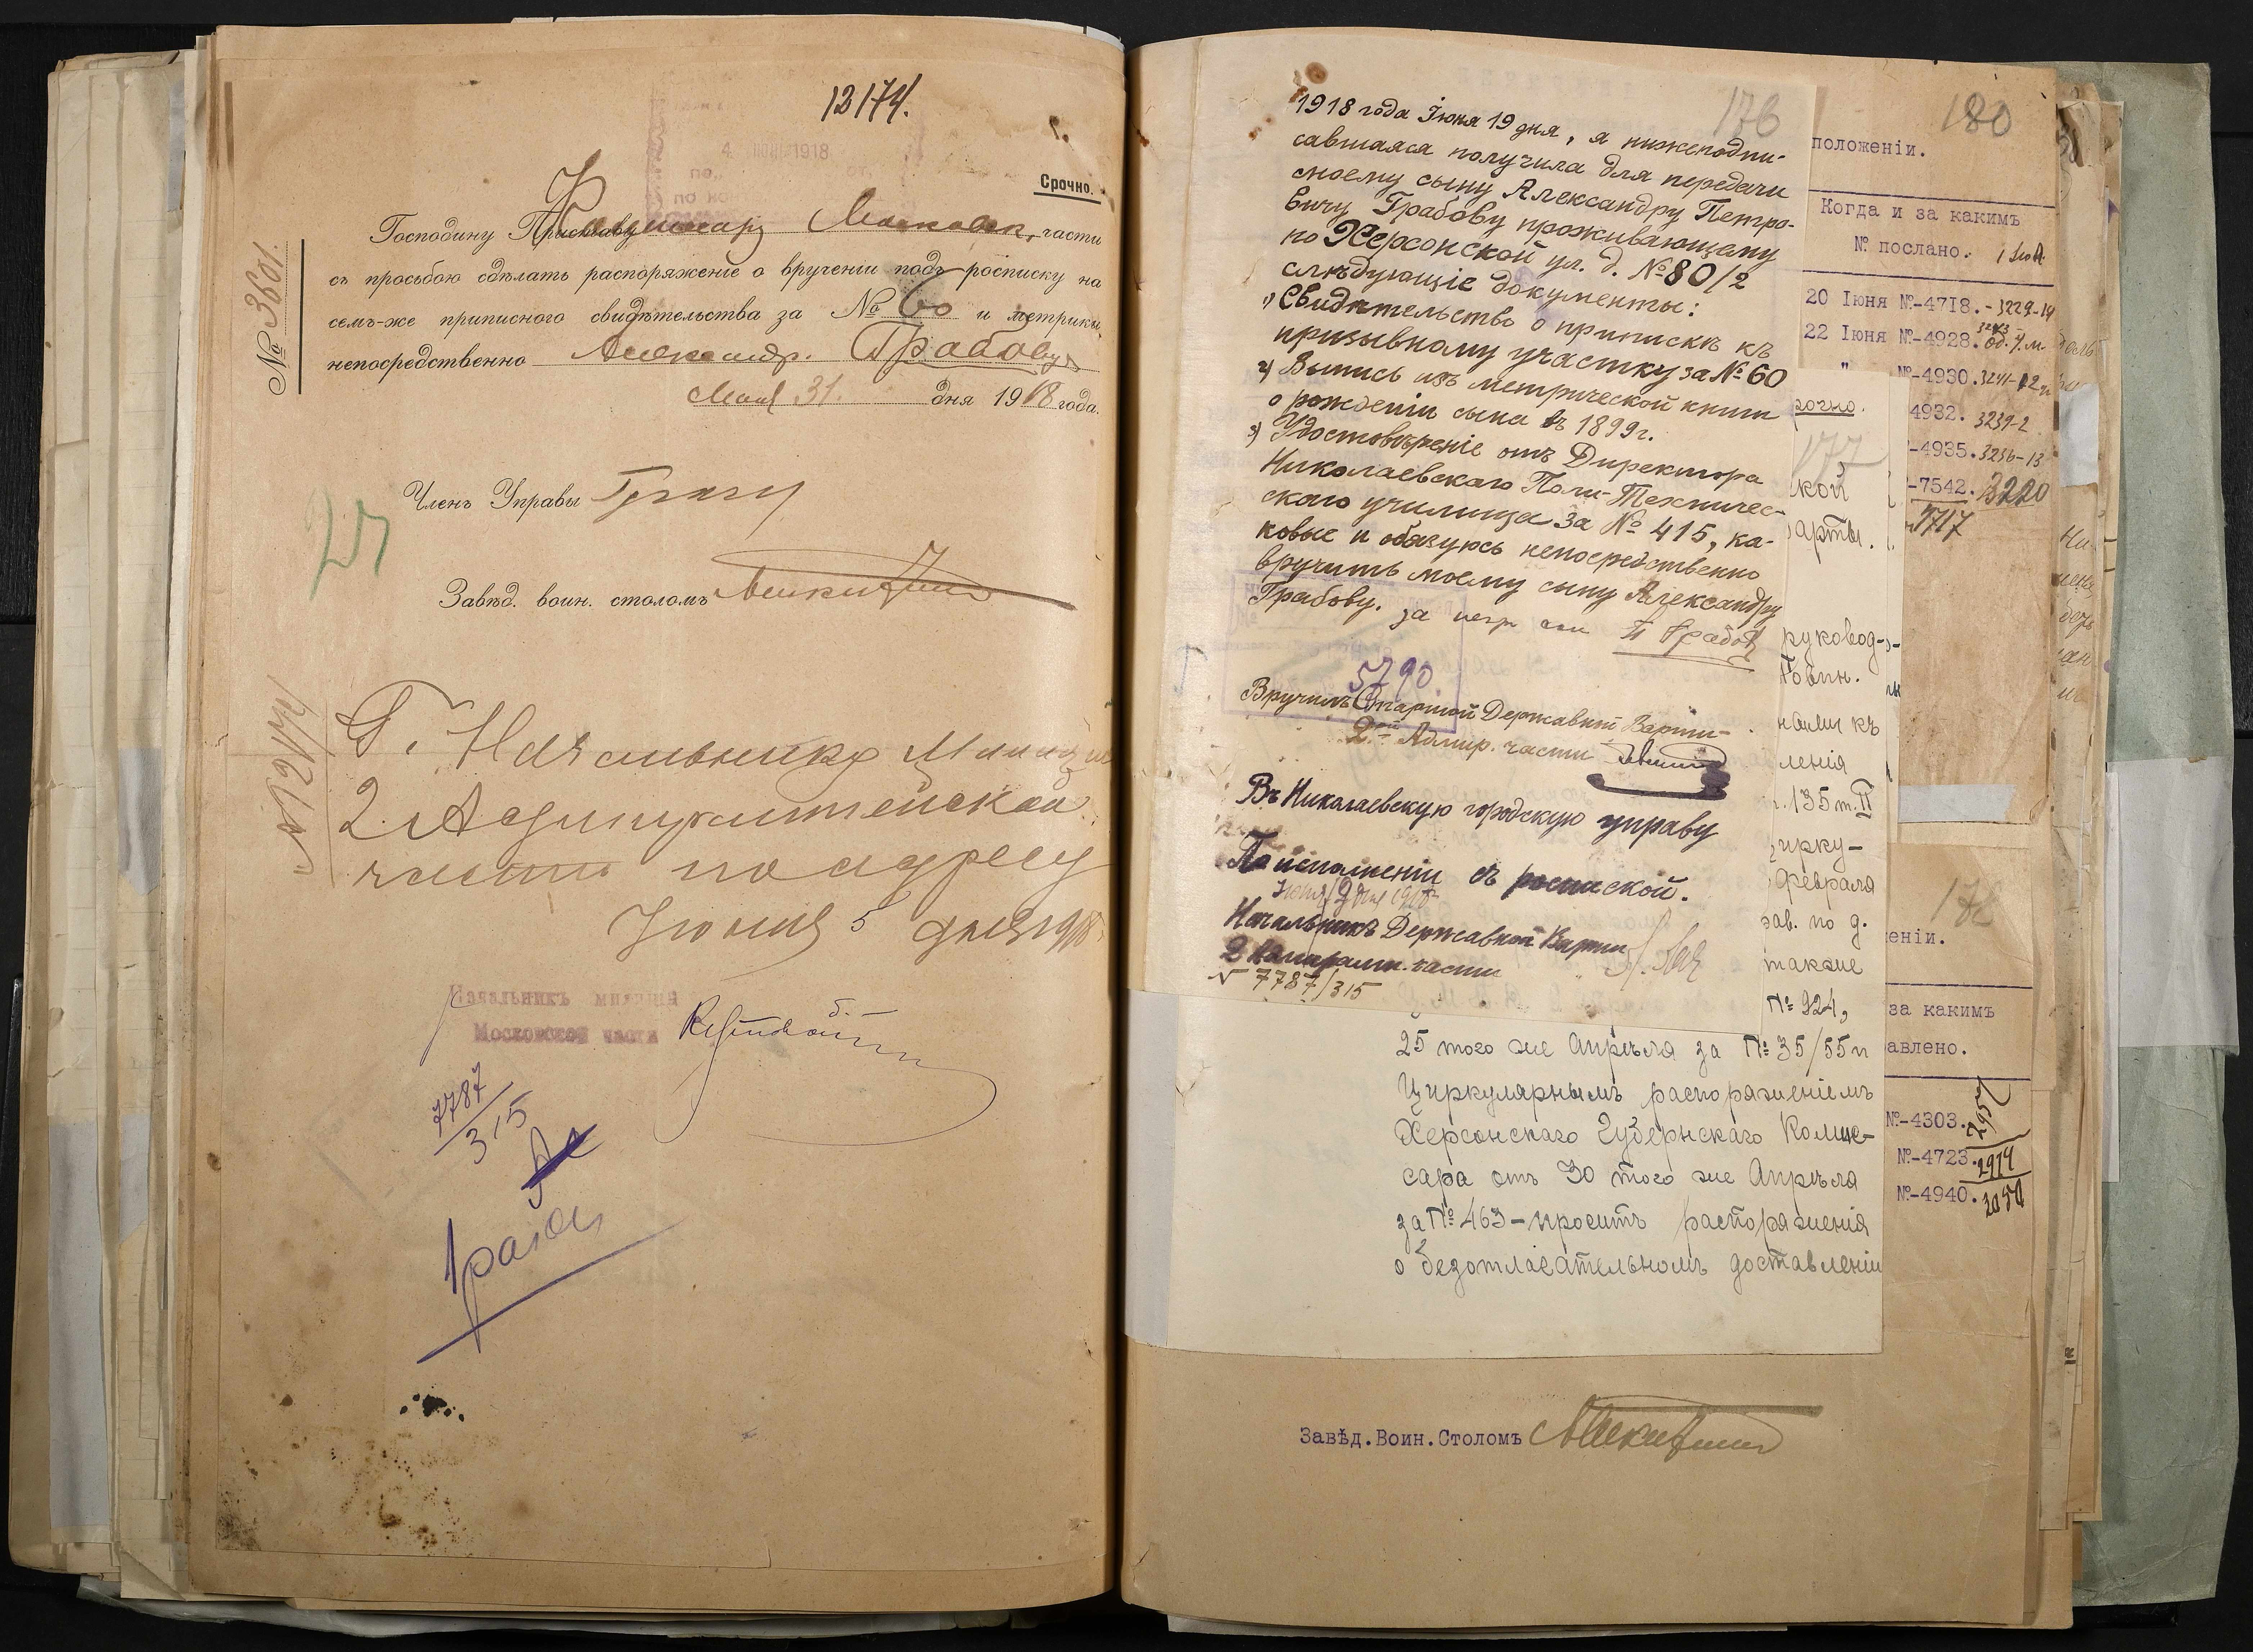 12174.
4 1918
Срочно.
№ 3601.
Господину Приставу Московск. части
съ просьбою сдѣлать распоряженіе о врученіи подъ росписку на
семъ-же приписного свидѣтельства за № 60 и метрики
непосредственно Александр. Грабову
Мая 31. дня 1918 года.
Членъ Управы
Завѣд. воин. столомъ
Г. Начальнику Милиции
2 Адмиралтейской
части по адресу
Июня 5 дня 1918
Начальникъ милиціи
Московской части
7787/315
176
1918 года Іюня 19 дня, я нижеподпи-
савшаяся получила для передачи
своему сыну Александру Петро-
вичу Грабову проживающему
по Херсонской ул. д. № 80/2
слѣдующіе документы:
1) Свидѣтельство о припискѣ къ
призывному участку за № 60
2) Выпись изъ метрической книги
о рожденіи сына въ 1899 г.
3) Удостовѣреніе отъ Директора
Николаевскаго Поли-Техничес-
скаго училища за № 415, ка-
ковые и обязуюсь непосредственно
вручить моему сыну Александру
Грабову.
5790
Вручилъ Старшой Державной Варти
2ой Адмир. части
Въ Николаевскую городскую управу
По исполненіи съ роспиской.
Іюня 19 дня 1918
Начальникъ Державной Варти
2 Адмиралт. части
№ 7787/315
180
положеніи.
Когда и за какимъ
№ послано.
20 Іюня №-4718. - 3229-14
22 Іюня №-4928.
" №-4930. 3241-12
4932. 3239-2
-4935. 3236-13
-7542. 3220
7717
рочно.
177
кой
арты.
руковод-
воин.
ленія
г. 135 т. II
ирку-
Февраля
зав. по д.
также
№ 924,
25 того же Апрѣля за № 35/55 и
Циркулярнымъ распоряженіемъ
Херсонскаго Губернскаго Комис-
сара отъ 30 того же Апрѣля
за № 463 - проситъ распоряженія
о безотлагательномъ доставленіи
178
еніи.
за какимъ
авлено.
№-4303.
№-4723. 2914
№-4940. 3050
Завѣд.Воин.Столомъ